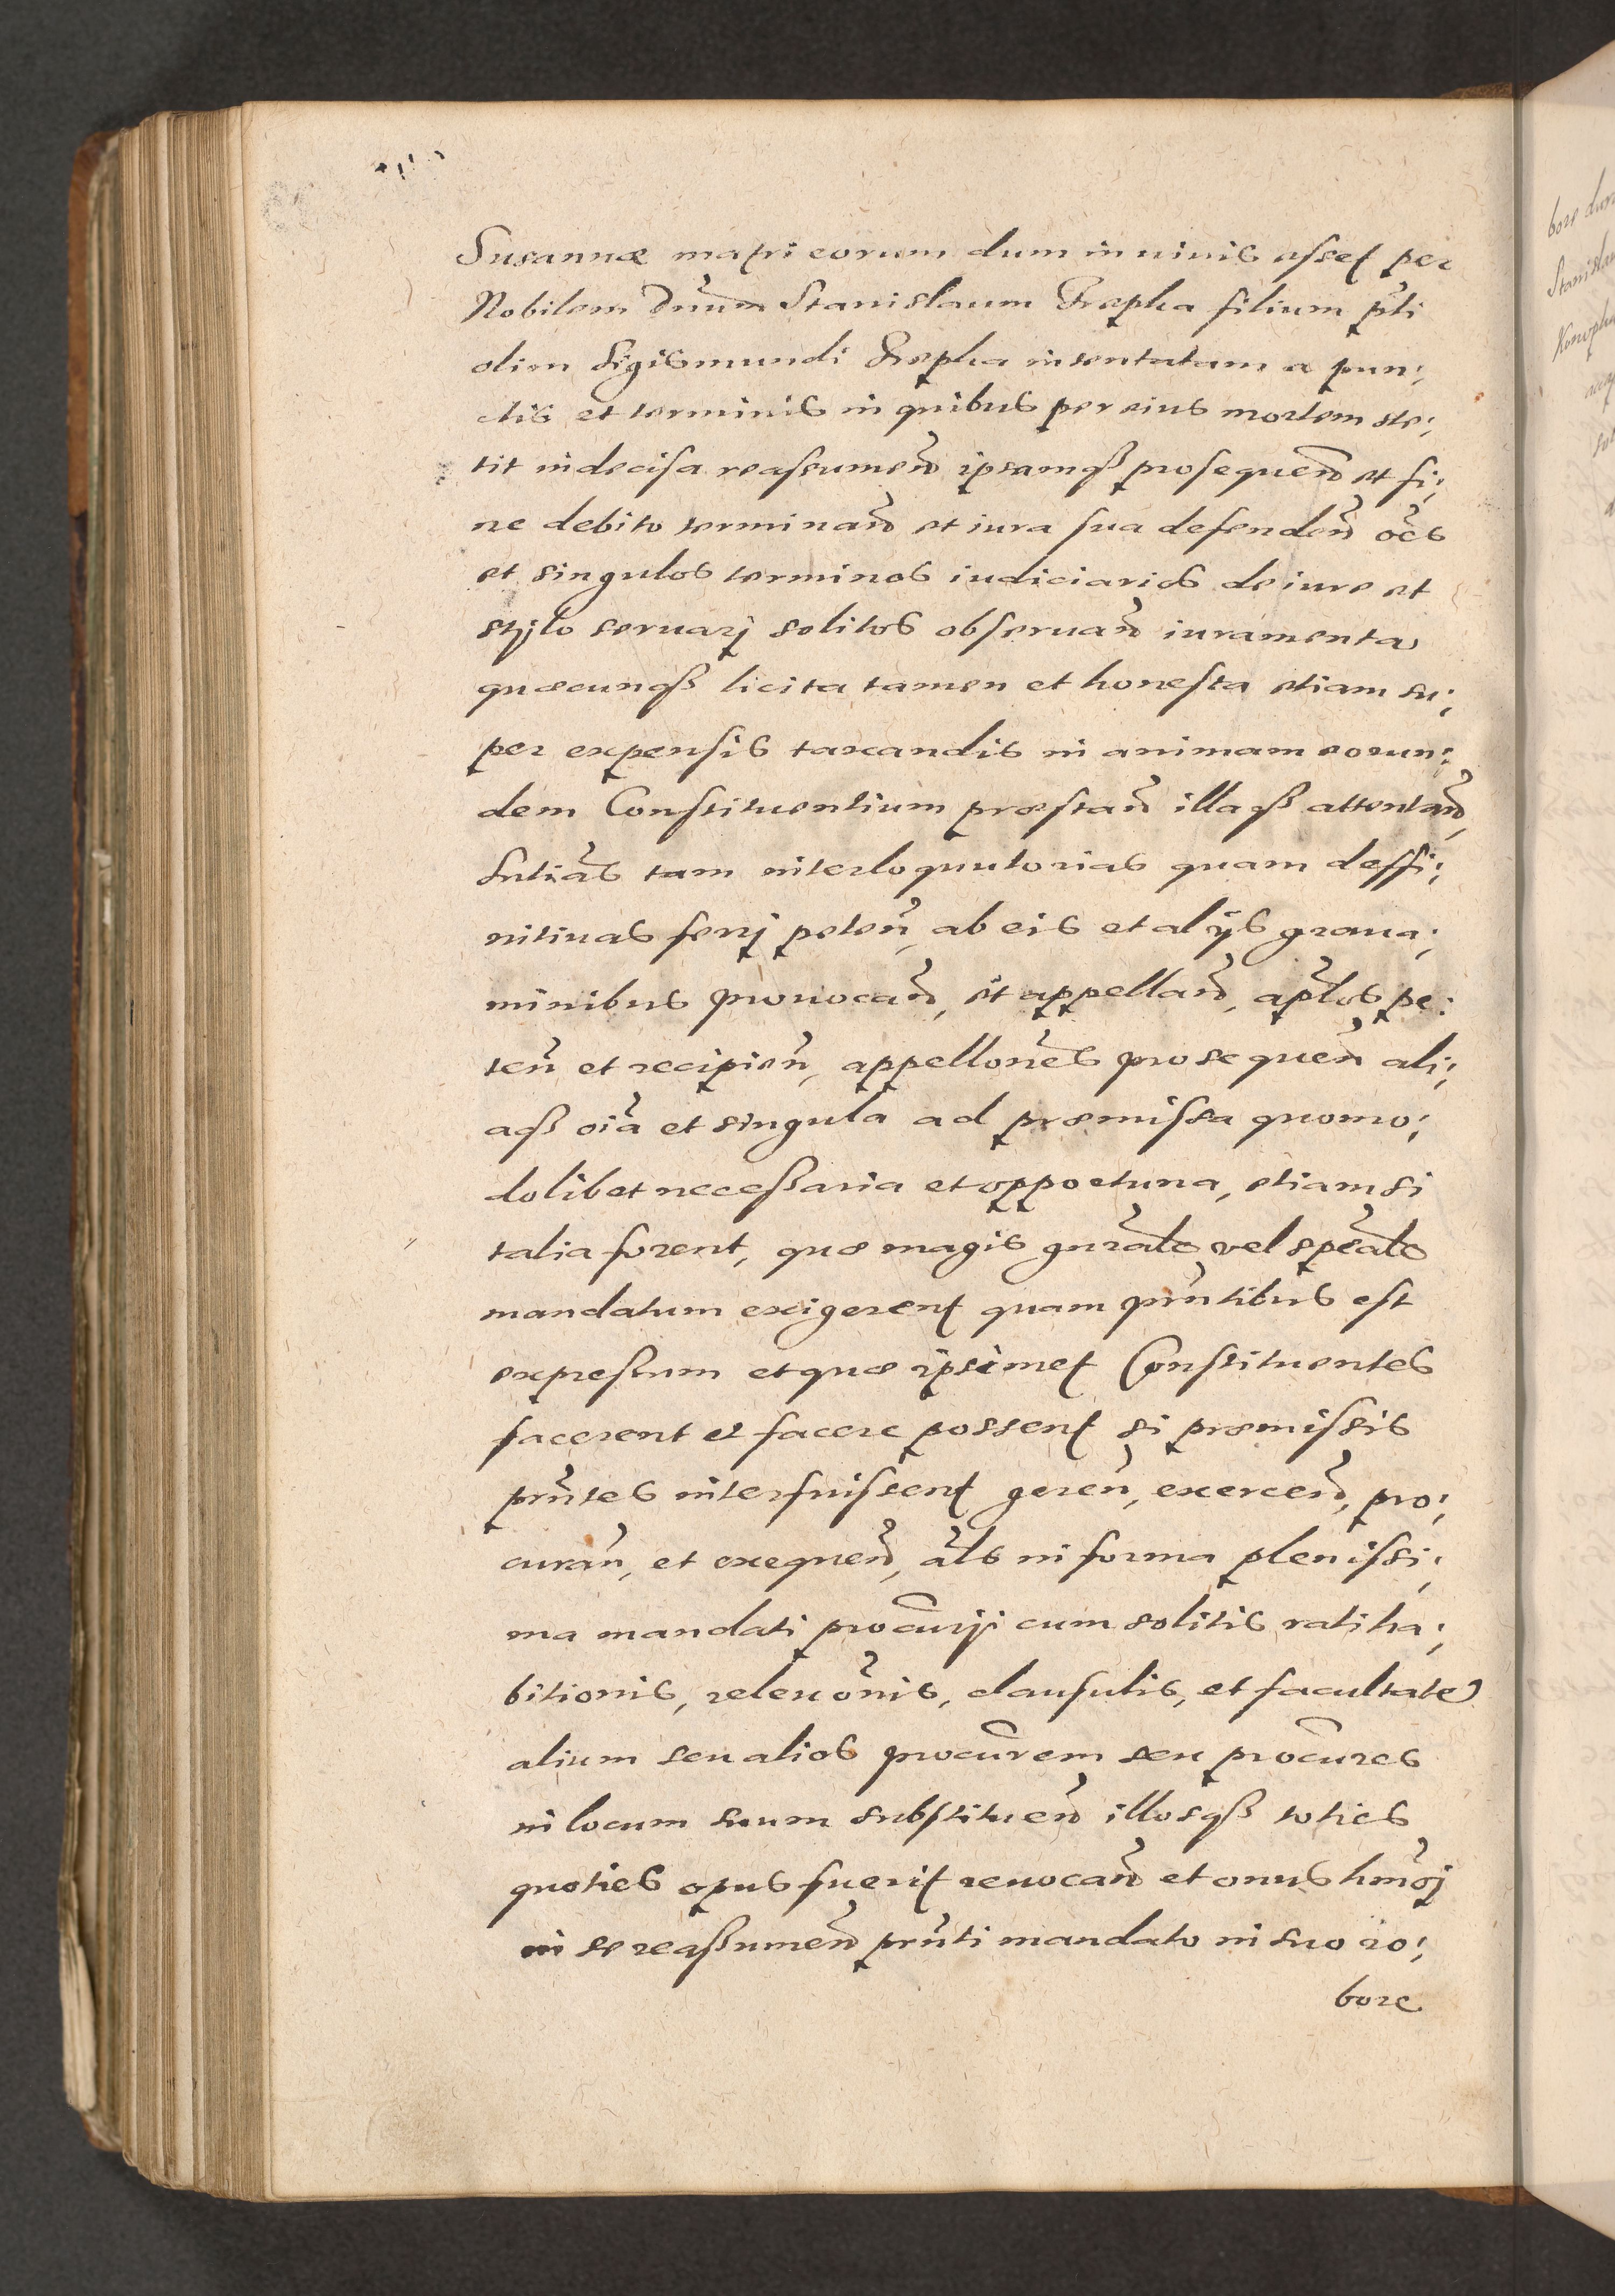 Susannæ matri eorum dum in uiuis esset per
Nobilem Dnum Stanislaum Krepka filium pti
olim Sigismundi Krepka intentatam a pun;
ctis et terminis in quibus per eius mortem ste;
tit indecisa reassumend ipsamqß prosequend et fi;
ne debito terminand et iura sua defendend oēs
et singulos terminos iudiciarios de iure et
stylo seruarj solitos obseruand iuramenta
quæcunqß licita tamen et honesta etiam su;
per expensis taxandis in animam eorun;
dem Constituentium præstand illaqß attentand,
Sntias tam interloquutorias quam deffi;
nitiuas ferrj peten, ab eis et alijs graua;
minibus prouocand, et appelland, aplos pe:
ten et recipien, appellones prosequen ali;
aqß oia et singula ad præmissa quomo;
dolibet necessaria et opportuna, etiam si
talia forent, quæ magis gnrale vel speale
mandatum exigerent quam pntibus est
expressum et quæ ipsimet Constituentes
facerent et facere possent si præmissis
pntes interfuissent geren, exercen, pro;
curan, et exequen, als in forma plenissi;
ma mandati procurij cum solitis ratiha;
bitionis, releuonis, clausulis, et facultate
alium seu alios procurem seu procures
in locum suum substituend illosqß toties
quoties opus fuerit reuocand et onus hmoj
in se reassumend pnti mandato in suo ro;
bore